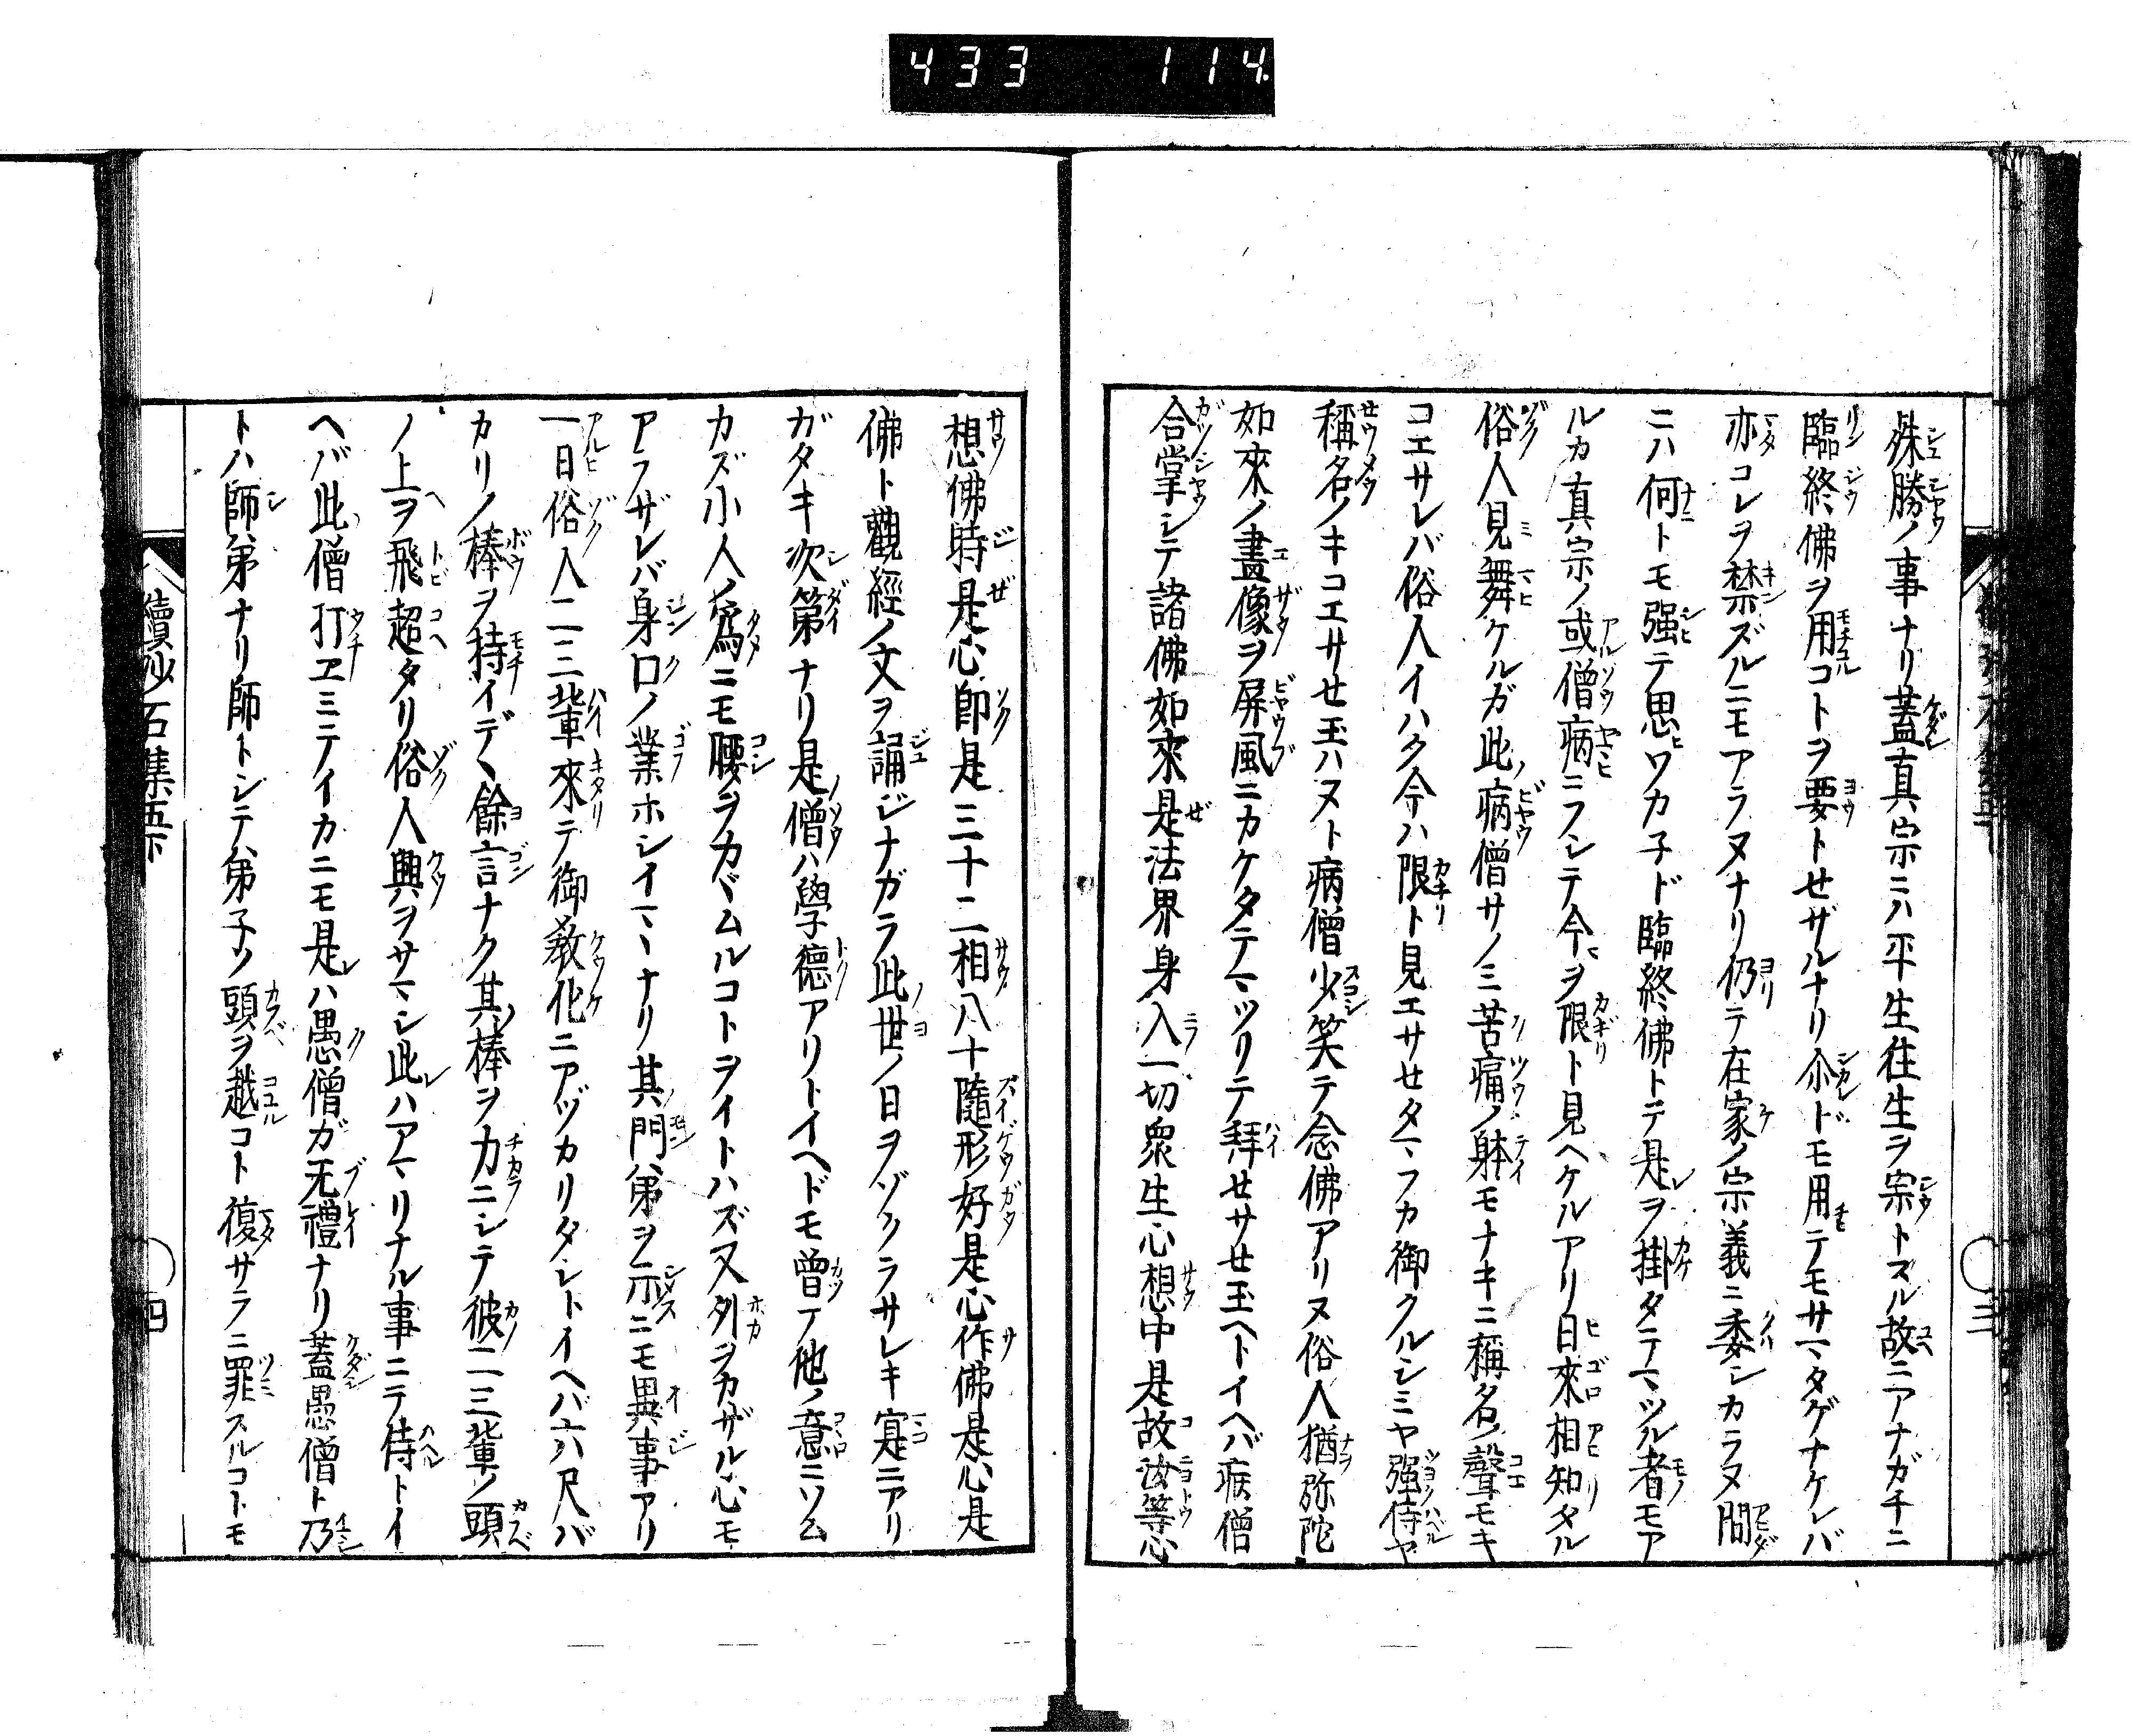 433 114
殊勝ノ事ナリ蓋真宗ニハ平生往生ヲ宗トスル故ニアナガチニ
臨終佛ヲ用コトヲ要トセザルナリ尒ドモ用テモサマタゲナケレバ
亦コレヲ禁ズルニモアラヌナリ仍テ在家ノ宗義ニ委シカラヌ間
ニハ何トモ强テ思ヒワカ子ド臨終佛トテ是ヲ掛タテマツル者モア
ルカ真宗ノ或僧病ニフシテ今ヲ限ト見ヘケルアリ日來相知タル
俗人見舞ケルガ此病僧サノミ苦痛ノ躰モナキニ稱名ノ聲モキ
コエサレバ俗人イハク今ハ限ト見エサせタマフカ御クルシミヤ强侍ヤ
稱名ノキコエサせ玉ハヌト病僧少笑テ念佛アリヌ俗人猶弥陀
如來ノ畫像ヲ屏風ニカケタテマツリテ拜せサせ玉ヘトイヘバ病僧
合掌シテ諸佛如來是法界身入一切衆生心想中是故汝等心
想佛時是心即是三十二相八十隨形好是心作佛是心是
佛ト觀經ノ文ヲ誦ジナガラ此世ノ日ヲゾクラサレキ寔ニアリ
ガタキ次第ナリ是僧ハ學德アリトイヘドモ曾テ他ノ意ニソム
カズ小人ノ爲ニモ腰ヲカヾムルコトヲイトハズ又外ヲカザル心モ
アラザレバ身口ノ業ホシイマヽナリ其門弟ヲ示ニモ異事アリ
一日俗人二三輩來テ御教化ニアヅカリタシトイヘバ六尺バ
カリノ棒ヲ持イデヽ餘言ナク其棒ヲ力ニシテ彼二三輩ノ頭
ノ上ヲ飛超タリ俗人興ヲサマシ此ハアマリナル事ニテ侍トイ
ヘバ此僧打ヱミテイカニモ是ハ愚僧ガ无禮ナリ蓋愚僧ト乃
トハ師弟ナリ師トシテ弟子ノ頭ヲ越コト復サラニ罪スルコトモ
續沙石集五下
四